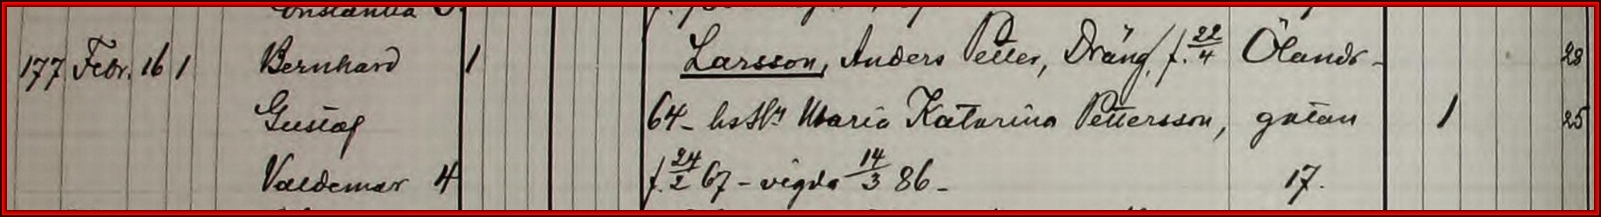 Constantia
177 Febr. 16 1 Bernhard 1 Larsson, Anders Petter, Dräng, f. 22/4 Ölands- 28
Gustaf 64 - hs Hu Maria Katarina Pettersson, gatan 1 25
Valdemar 4 f. 24/2 67 - vigda 14/3 86 - 17.